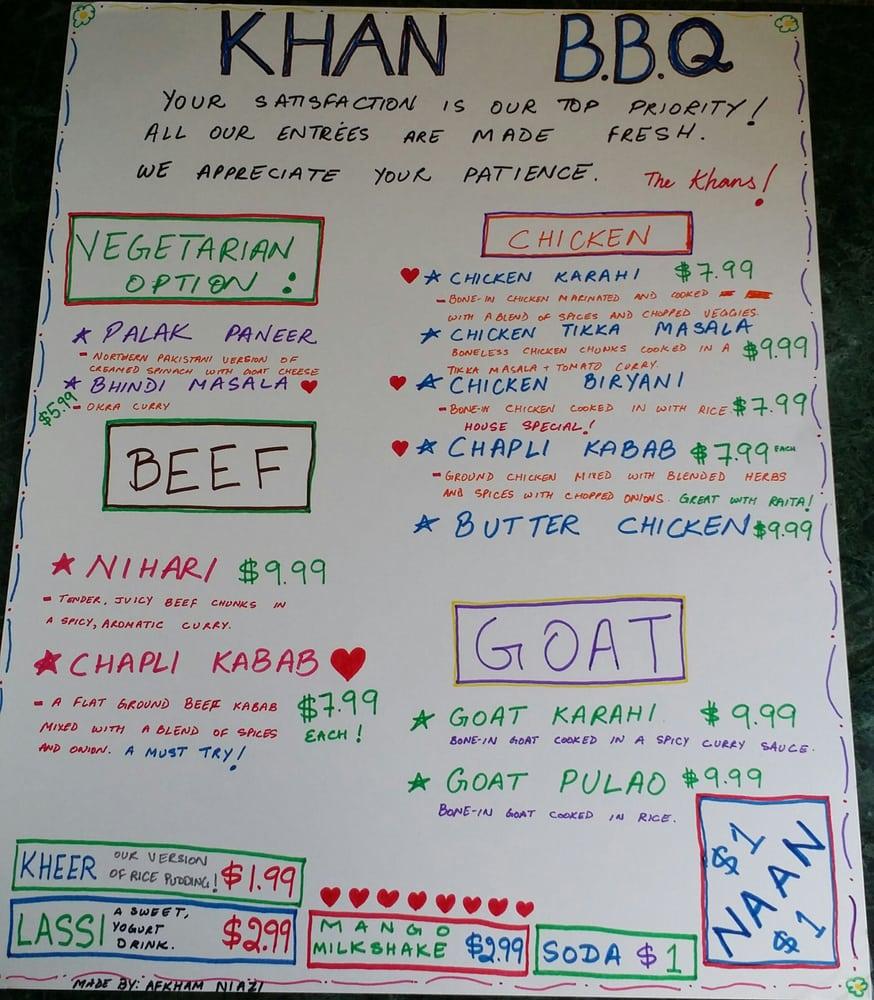 KHAN B.B.Q
YOUR SATISFACTION IS OUR TOP PRIORITY!
ALL OUR ENTRÉES ARE MADE FRESH.
WE APPRECIATE YOUR PATIENCE. The Khans!
VEGETARIAN
OPTION :
PALAK PANEER
- NORTHERN PAKISTANI VERSION OF
CREAMED SPINACH WITH GOAT CHEESE
BHINDI MASALA
$5.99
- OKRA CURRY
BEEF
NIHARI $9.99
- TENDER, JUICY BEEF CHUNKS IN
A SPICY, AROMATIC CURRY.
CHAPLI KABAB
- A FLAT GROUND BEEF KABAB $7.99
MIXED WITH A BLEND OF SPICES EACH!
AND ONION. A MUST TRY!
CHICKEN
CHICKEN KARAHI $7.99
- BONE-IN CHICKEN MARINATED AND COOKED
WITH A BLEND OF SPICES AND CHOPPED VEGGIES.
CHICKEN TIKKA MASALA
BONELESS CHICKEN CHUNKS COOKED IN A $9.99
TIKKA MASALA + TOMATO CURRY.
CHICKEN BIRYANI
- BONE-IN CHICKEN COOKED IN WITH RICE $7.99
HOUSE SPECIAL!
CHAPLI KABAB $7.99 EACH
- GROUND CHICKEN MIXED WITH BLENDED HERBS
AND SPICES WITH CHOPPED ONIONS. GREAT WITH RAITA!
BUTTER CHICKEN $9.99
GOAT
GOAT KARAHI $9.99
BONE-IN GOAT COOKED IN A SPICY CURRY SAUCE.
GOAT PULAO $9.99
BONE-IN GOAT COOKED IN RICE.
KHEER OUR VERSION
OF RICE PUDDING! $1.99
LASSI A SWEET,
YOGURT
DRINK. $2.99
MANGO
MILKSHAKE $2.99
SODA $1
$1
NAAN
$1
MADE BY: AFKHAM NIAZI